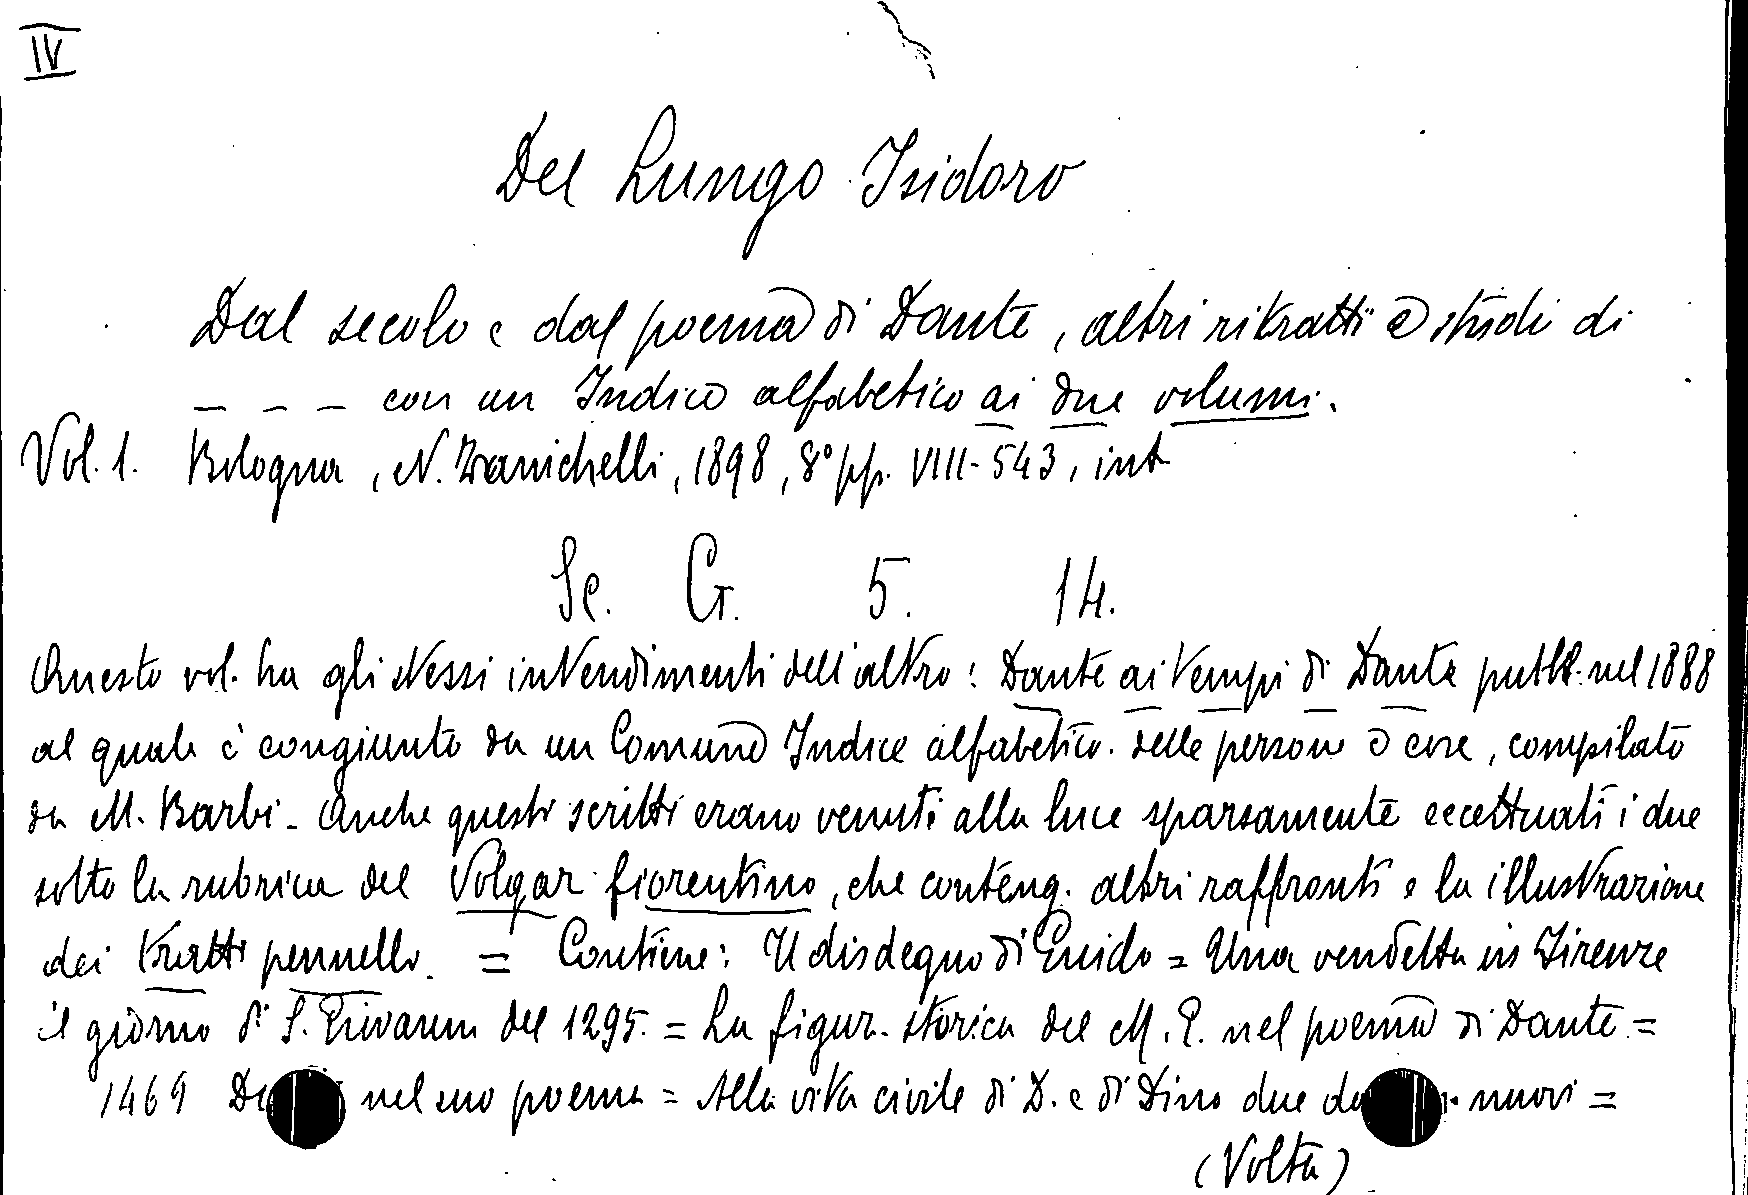 IV
Del Lungo Isidoro
Dal secolo e dal poema di Dante, altri ritratti e studi di
_ _ _ con un Indice alfabetico ai due volumi.
Vol. 1. Bologna, N. Zanichelli, 1898, 8° pp. VIII-543, int
Sc. G. 5. 14.
Questo vol. ha gli stessi intendimenti dell'altro: Dante ai tempi di Dante pubbl. nel 1888
al quale è congiunto da un Comune Indice alfabetico delle persone e cose, compilato
da M. Barbi - Anche questi scritti erano venuti alla luce sparsamente eccettuati i due
sotto la rubrica del Volgar fiorentino, che conteng. altri raffronti e la illustrazione
dei tratti pennello. = Contiene: Il disdegno di Guido = Una vendetta in Firenze
il giorno di S. Giovanni del 1295. = La figur. storica del M. E. nel poema di Dante =
1469 nel suo poema = Alla vita civile di D. e di Dino due nuovi =
(Volta)